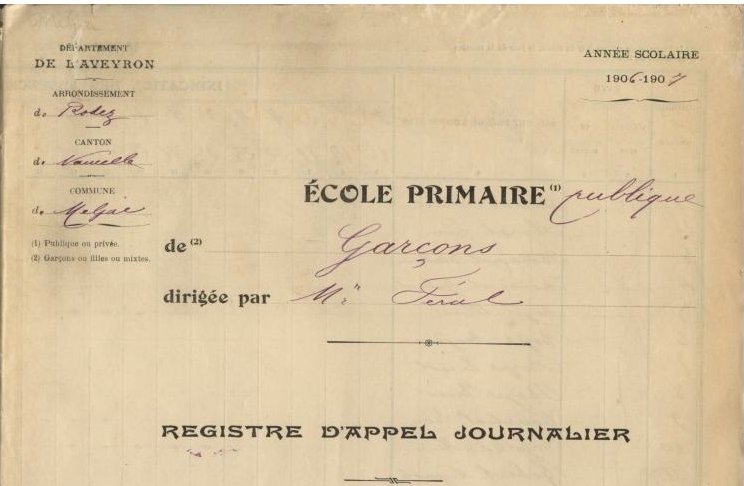 DÉPARTEMENT
DE L'AVEYRON
ARRONDISSEMENT
de Rodez
CANTON
de Naucelle
COMMUNE
de Meljac
(1) Publique ou privée.
(2) Garçons ou filles ou mixtes.
ANNÉE SCOLAIRE
1906-1907
ÉCOLE PRIMAIRE (1) publique
de (2) Garçons
dirigée par Mr Féral
REGISTRE D'APPEL JOURNALIER